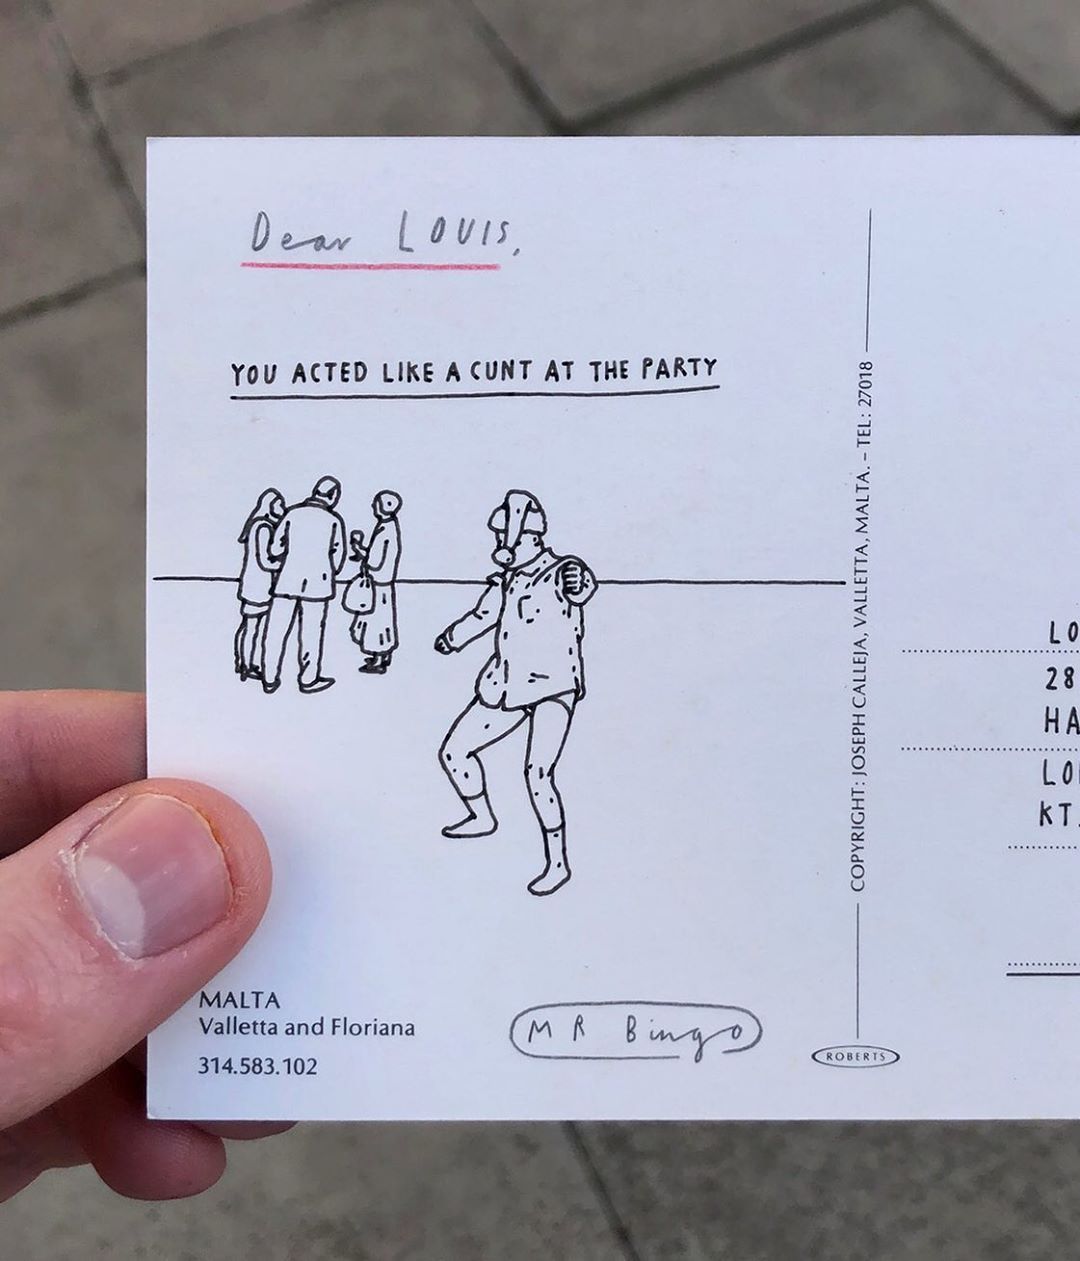 Dear LOUIS,
YOU ACTED LIKE A CUNT AT THE PARTY
MALTA
Valletta and Floriana
314.583.102
MR Bingo
COPYRIGHT: JOSEPH CALLEJA, VALLETTA, MALTA. – TEL: 27018
ROBERTS
LO
28
HA
LO
KT